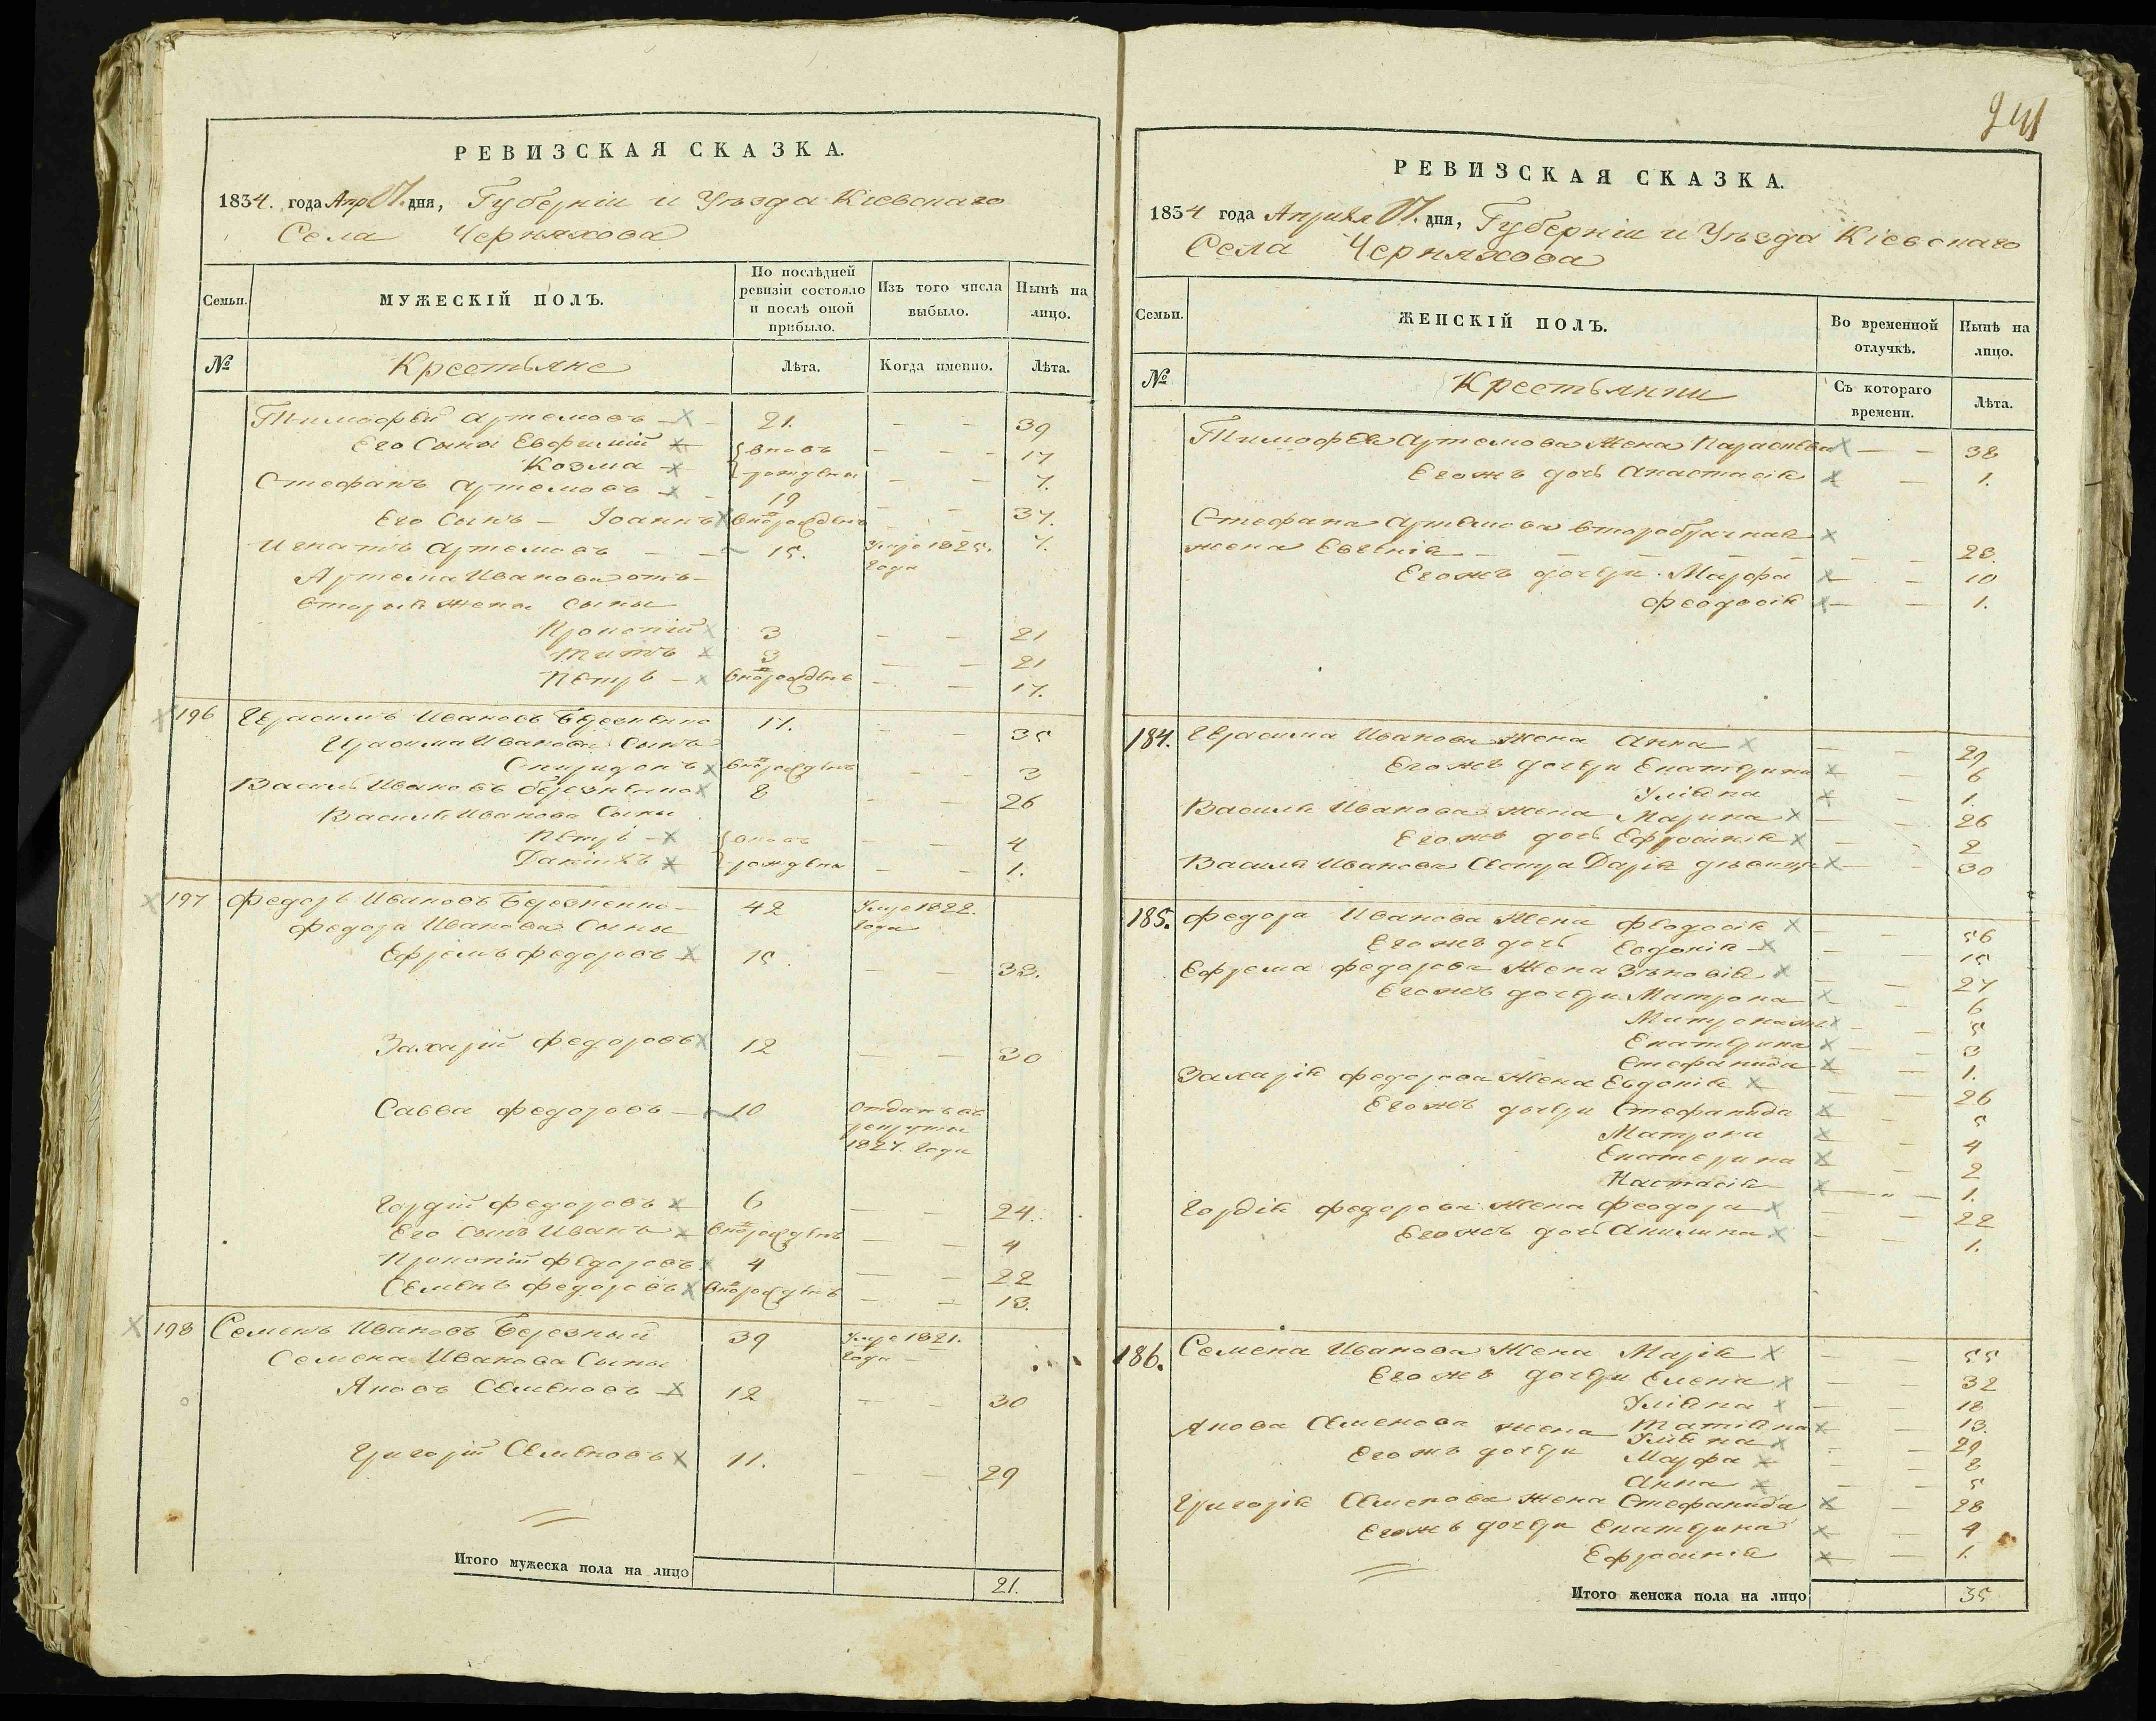 РЕВИЗСКАЯ СКАЗКА.
1834. года Апр 17. дня, Губерніи и Уѣзда Кіевскаго
Села Черняхова
Семьи.
МУЖЕСКІЙ ПОЛЪ.
По послѣдней ревизіи состояло и послѣ оной прибыло.
Изъ того числа выбыло.
Нынѣ на лицо.
№
Крестьяне
Лѣта.
Когда именно.
Лѣта.
Тимофей Артемовъ - 21. - - 39
Его Сыны Евфимій вновь - - 17
Козма рождены - - 7.
Стефанъ Артемовъ - 19 - - 37.
Его Сынъ - Іоаннъ внорожденъ - - 7.
Игнатъ Артемовъ - - 15. Умре 1825. года
Артема Иванова отъ
второй жены сыны
Прокопій 3 - - 21
Титъ 3 - - 21
Петръ - внорожденъ - - 17.
196 Герасимъ Ивановъ Березненко 17. - - 35
Герасима Иванова Сынъ
Спиридонъ внорожденъ - - 3
Василь Ивановъ Березненко 8 - - 26
Василя Иванова Сыны
Петръ - вновь - - 4
Даніилъ рождены - - 1.
197 Федоръ Ивановъ Березненко - 42 Умре 1822. года
Федора Иванова Сыны
Ефремъ Федоровъ - 15. - - 33.
Захарій Федоровъ 12 - - 30
Савва Федоровъ - 10 Отданъ въ рекруты 1827. года
Гордій Федоровъ 6 - - 24.
Его Сынъ Иванъ внорожденъ - - 4
Прокопій Федоровъ 4 - - 22
Семенъ Федоровъ внорожденъ - - 13.
198 Семенъ Ивановъ Березный 39 Умре 1821. года -
Семена Иванова Сыны
Яковъ Семеновъ 12 - - 30
Григорій Семеновъ 11. - - 29
Итого мужеска пола на лицо 21.
241
РЕВИЗСКАЯ СКАЗКА.
1834 года Апреля 17. дня, Губерніи и Уѣзда Кіевскаго
Села Черняхова
Семьи.
ЖЕНСКІЙ ПОЛЪ.
Во временной отлучкѣ.
Нынѣ на лицо.
№
Крестьянки
Съ котораго времени.
Лѣта.
Тимофея Артемова Жена Параскева - - 38
Егожъ дочь Анастасія - 1.
Стефана Артемова второбрачная
жена Евгенія - - - 28.
Егожъ дочери Марфа - 10
Феодосія - - 1.
184. Герасима Иванова Жена Анна - - 29
Егожъ дочери Екатерина - 6
Уліяна - 1.
Василя Иванова жена Марина - - 26
Егожъ дочь Ефросинія - 2
Василя Иванова Сестра Дарія дѣвица - 30
185. Федора Иванова Жена Феодосія - - 56
Егожъ дочь Евдокія - - 15
Ефрема Федорова Жена Зѣновія - - 27
Егожъ дочери Матрона - - 6
Матронажъ - - 5
Екатерина - - 3
Стефанида - - 1.
Захарія Федорова Жена Евдокія - - 26
Егожъ дочери Стефанида - - 5
Матрона - - 4
Екатерина - 2
Настасія - - 1.
Гордія Федорова Жена Феодора - - 22
Егожъ дочь Акилина - - 1.
186. Семена Иванова Жена Марія - - 55
Егожъ дочери Елена - - 32
Уліяна - - 18
Татіяна - 13.
Якова Семенова жена Уліяна - - 29
Егожъ дочери Марфа - - 8
Анна - - 5
Григорія Семенова жена Стефанида - 28
Егожъ дочери Екатерина - - 4
Ефросинія - - 1.
Итого женска пола на лицо 35